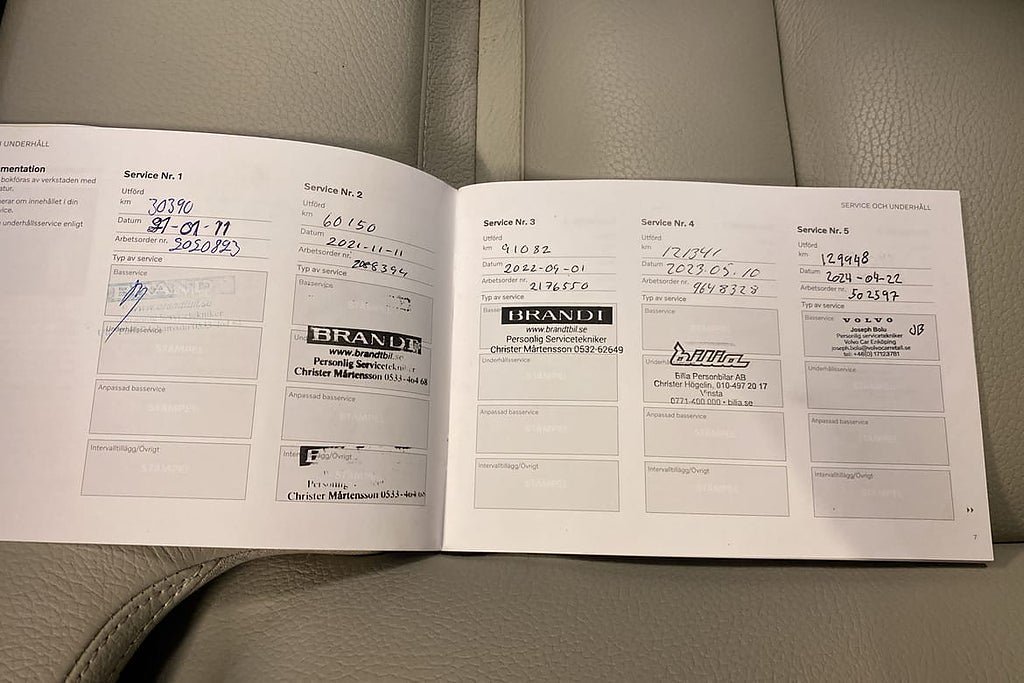 UNDERHÅLL
mentation
bokföras av verkstaden med
atur.
nerar om innehållet i din
vice.
underhållsservice enligt
Service Nr. 1
Utförd
km 30390
Datum 21-01-11
Arbetsorder nr. 2020823
Typ av service
Basservice
Underhållsservice
Anpassad basservice
STÄMPEL
Intervalltillägg/Övrigt
STÄMPEL
Service Nr. 2
Utförd
km 60150
Datum 2021-11-11
Arbetsorder nr. 2088394
Typ av service
Basservice
BRANDT
www.brandtbil.se
Personlig Servicetekniker
Christer Mårtensson 0533-464 68
Anpassad basservice
Christer Mårtensson 0533-464 68
Service Nr. 3
Utförd
km 91082
Datum 2022-09-01
Arbetsorder nr. 2176550
Typ av service
BRANDT
www.brandtbil.se
Personlig Servicetekniker
Christer Mårtensson 0532-62649
Underhållsservice
Anpassad basservice
Intervalltillägg/Övrigt
STÄMPEL
Service Nr. 4
Utförd
km 121341
Datum 2023.05.10
Arbetsorder nr. 9648328
Typ av service
Basservice
bilia
Bilia Personbilar AB
Christer Högelin, 010-497 20 17
Vinsta
0771-400 000 • bilia.se
Anpassad basservice
Intervalltillägg/Övrigt
SERVICE OCH UNDERHÅLL
Service Nr. 5
Utförd
km 129948
Datum 2024-04-22
Arbetsorder nr. 502597
Typ av service
Basservice
VOLVO
Joseph Bolu
Personlig servicetekniker
Volvo Car Enköping
joseph.bolu@volvocarretail.se
tel: +46(0) 17123781
JB
Underhållsservice
Anpassad basservice
Intervalltillägg/Övrigt
7